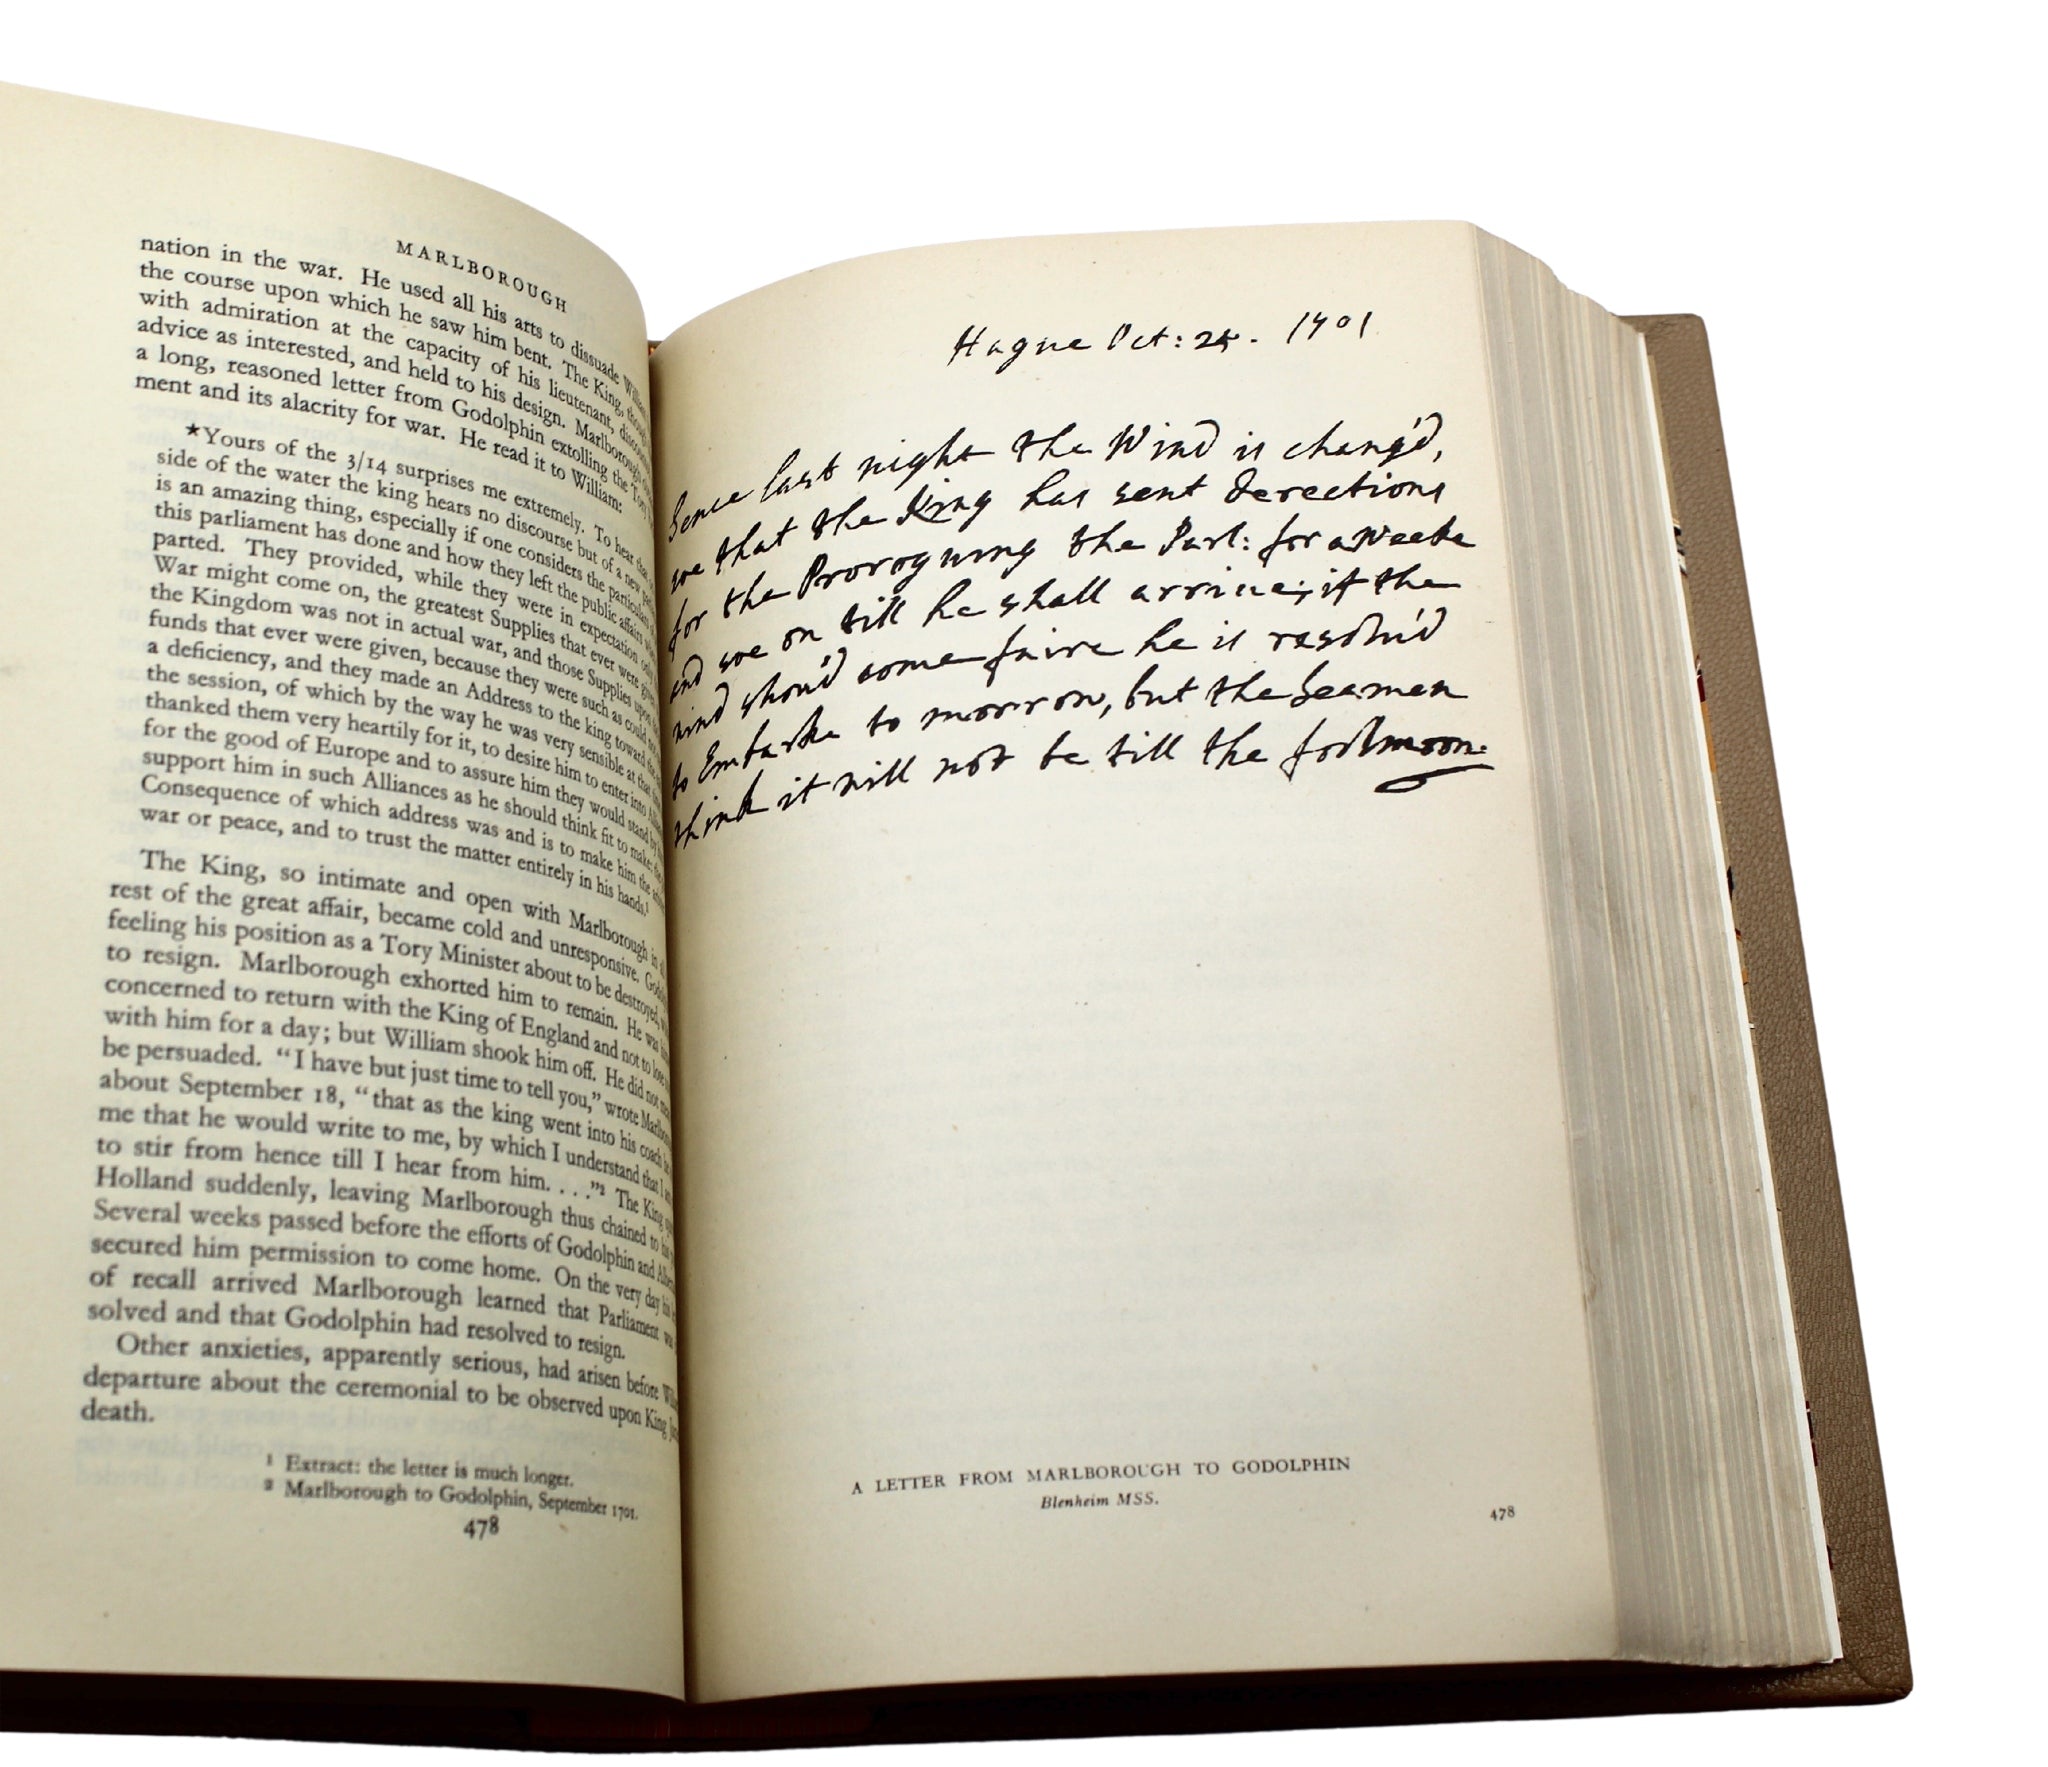 MARLBOROUGH
nation in the war. He used all his arts to dissuade
the course upon which he saw him bent. The King, though
with admiration at the capacity of his lieutenant,
advice as interested, and held to his design. Marlborough
a long, reasoned letter from Godolphin extolling the Tory
ment and its alacrity for war. He read it to William:
★Yours of the 3/14 surprises me extremely. To hear that
side of the water the king hears no discourse but of a new
is an amazing thing, especially if one considers the particulars
this parliament has done and how they left the public affairs
parted. They provided, while they were in expectation only
War might come on, the greatest Supplies that ever were
the Kingdom was not in actual war, and those Supplies upon
funds that ever were given, because they were such as could not
a deficiency, and they made an Address to the king toward the
the session, of which by the way he was very sensible at that
thanked them very heartily for it, to desire him to enter into
for the good of Europe and to assure him they would stand by
support him in such Alliances as he should think fit to make:
Consequence of which address was and is to make him the
war or peace, and to trust the matter entirely in his hands.¹
The King, so intimate and open with Marlborough in
rest of the great affair, became cold and unresponsive.
feeling his position as a Tory Minister about to be destroyed,
to resign. Marlborough exhorted him to remain. He was
concerned to return with the King of England and not to lose
with him for a day; but William shook him off. He did not
be persuaded. “I have but just time to tell you,” wrote
about September 18, “that as the king went into his coach
me that he would write to me, by which I understand that I
to stir from hence till I hear from him. . . .”² The King
Holland suddenly, leaving Marlborough thus chained to his
Several weeks passed before the efforts of Godolphin and
secured him permission to come home. On the very day his
of recall arrived Marlborough learned that Parliament was
solved and that Godolphin had resolved to resign.
Other anxieties, apparently serious, had arisen before
departure about the ceremonial to be observed upon King
death.
¹ Extract: the letter is much longer.
² Marlborough to Godolphin, September 1701.
478
Hague Oct: 1701
Sence last night the Wind is chang'd,
soe that the King has sent derections
for the Proroguing the Parl: for a Weeke
and soe on till he shall arrive; if the
wind shou'd come faire he is resolu'd
to Embarke to morrow, but the Seamen
think it will not be till the foolmoon.
A LETTER FROM MARLBOROUGH TO GODOLPHIN
Blenheim MSS.
478